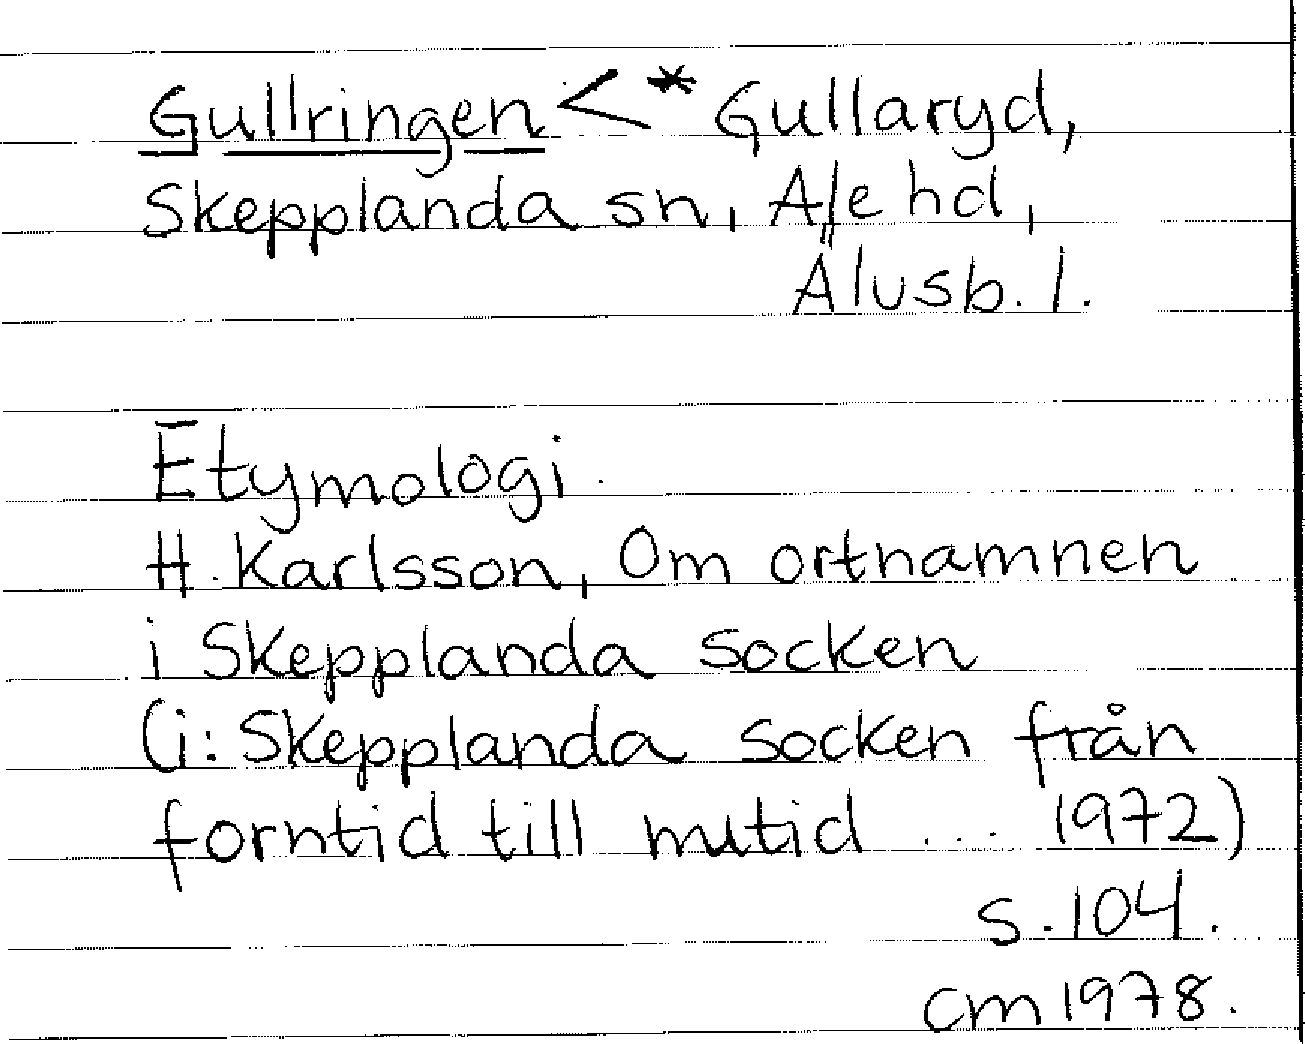 Gullringen < * Gullaryd,
Skepplanda sn, Ale hd,
Älvsb. l.
Etymologi.
H. Karlsson, Om ortnamnen
i Skepplanda socken
(i: Skepplanda socken från
forntid till nutid ... 1972)
s. 104.
CM 1978.